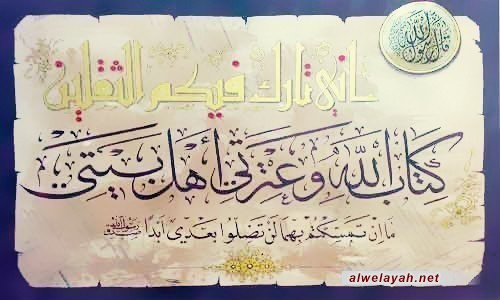 قال رسول الله
إني تارك فيكم الثقلين
كتاب الله وعترتي أهل بيتي
ما إن تمسكتم بهما لن تضلوا بعدي أبدا
alwelayah.net